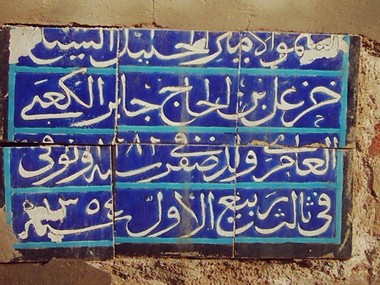 السمو الامير الجليل السيد
خزعل بن الحاج جابر الكعبي
العامري ولد في صفر سنة وتوفى
في ثالث ربيع الاول سنة ١٣٥٤